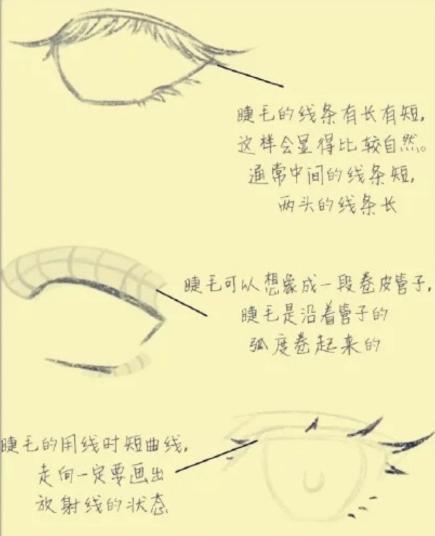 睫毛的线条有长有短,
这样会显得比较自然。
通常中间的线条短,
两头的线条长
睫毛可以想象成一段卷皮管子,
睫毛是沿着管子的
弧度卷起来的
睫毛的用线时短曲线,
走向一定要画出
放射线的状态